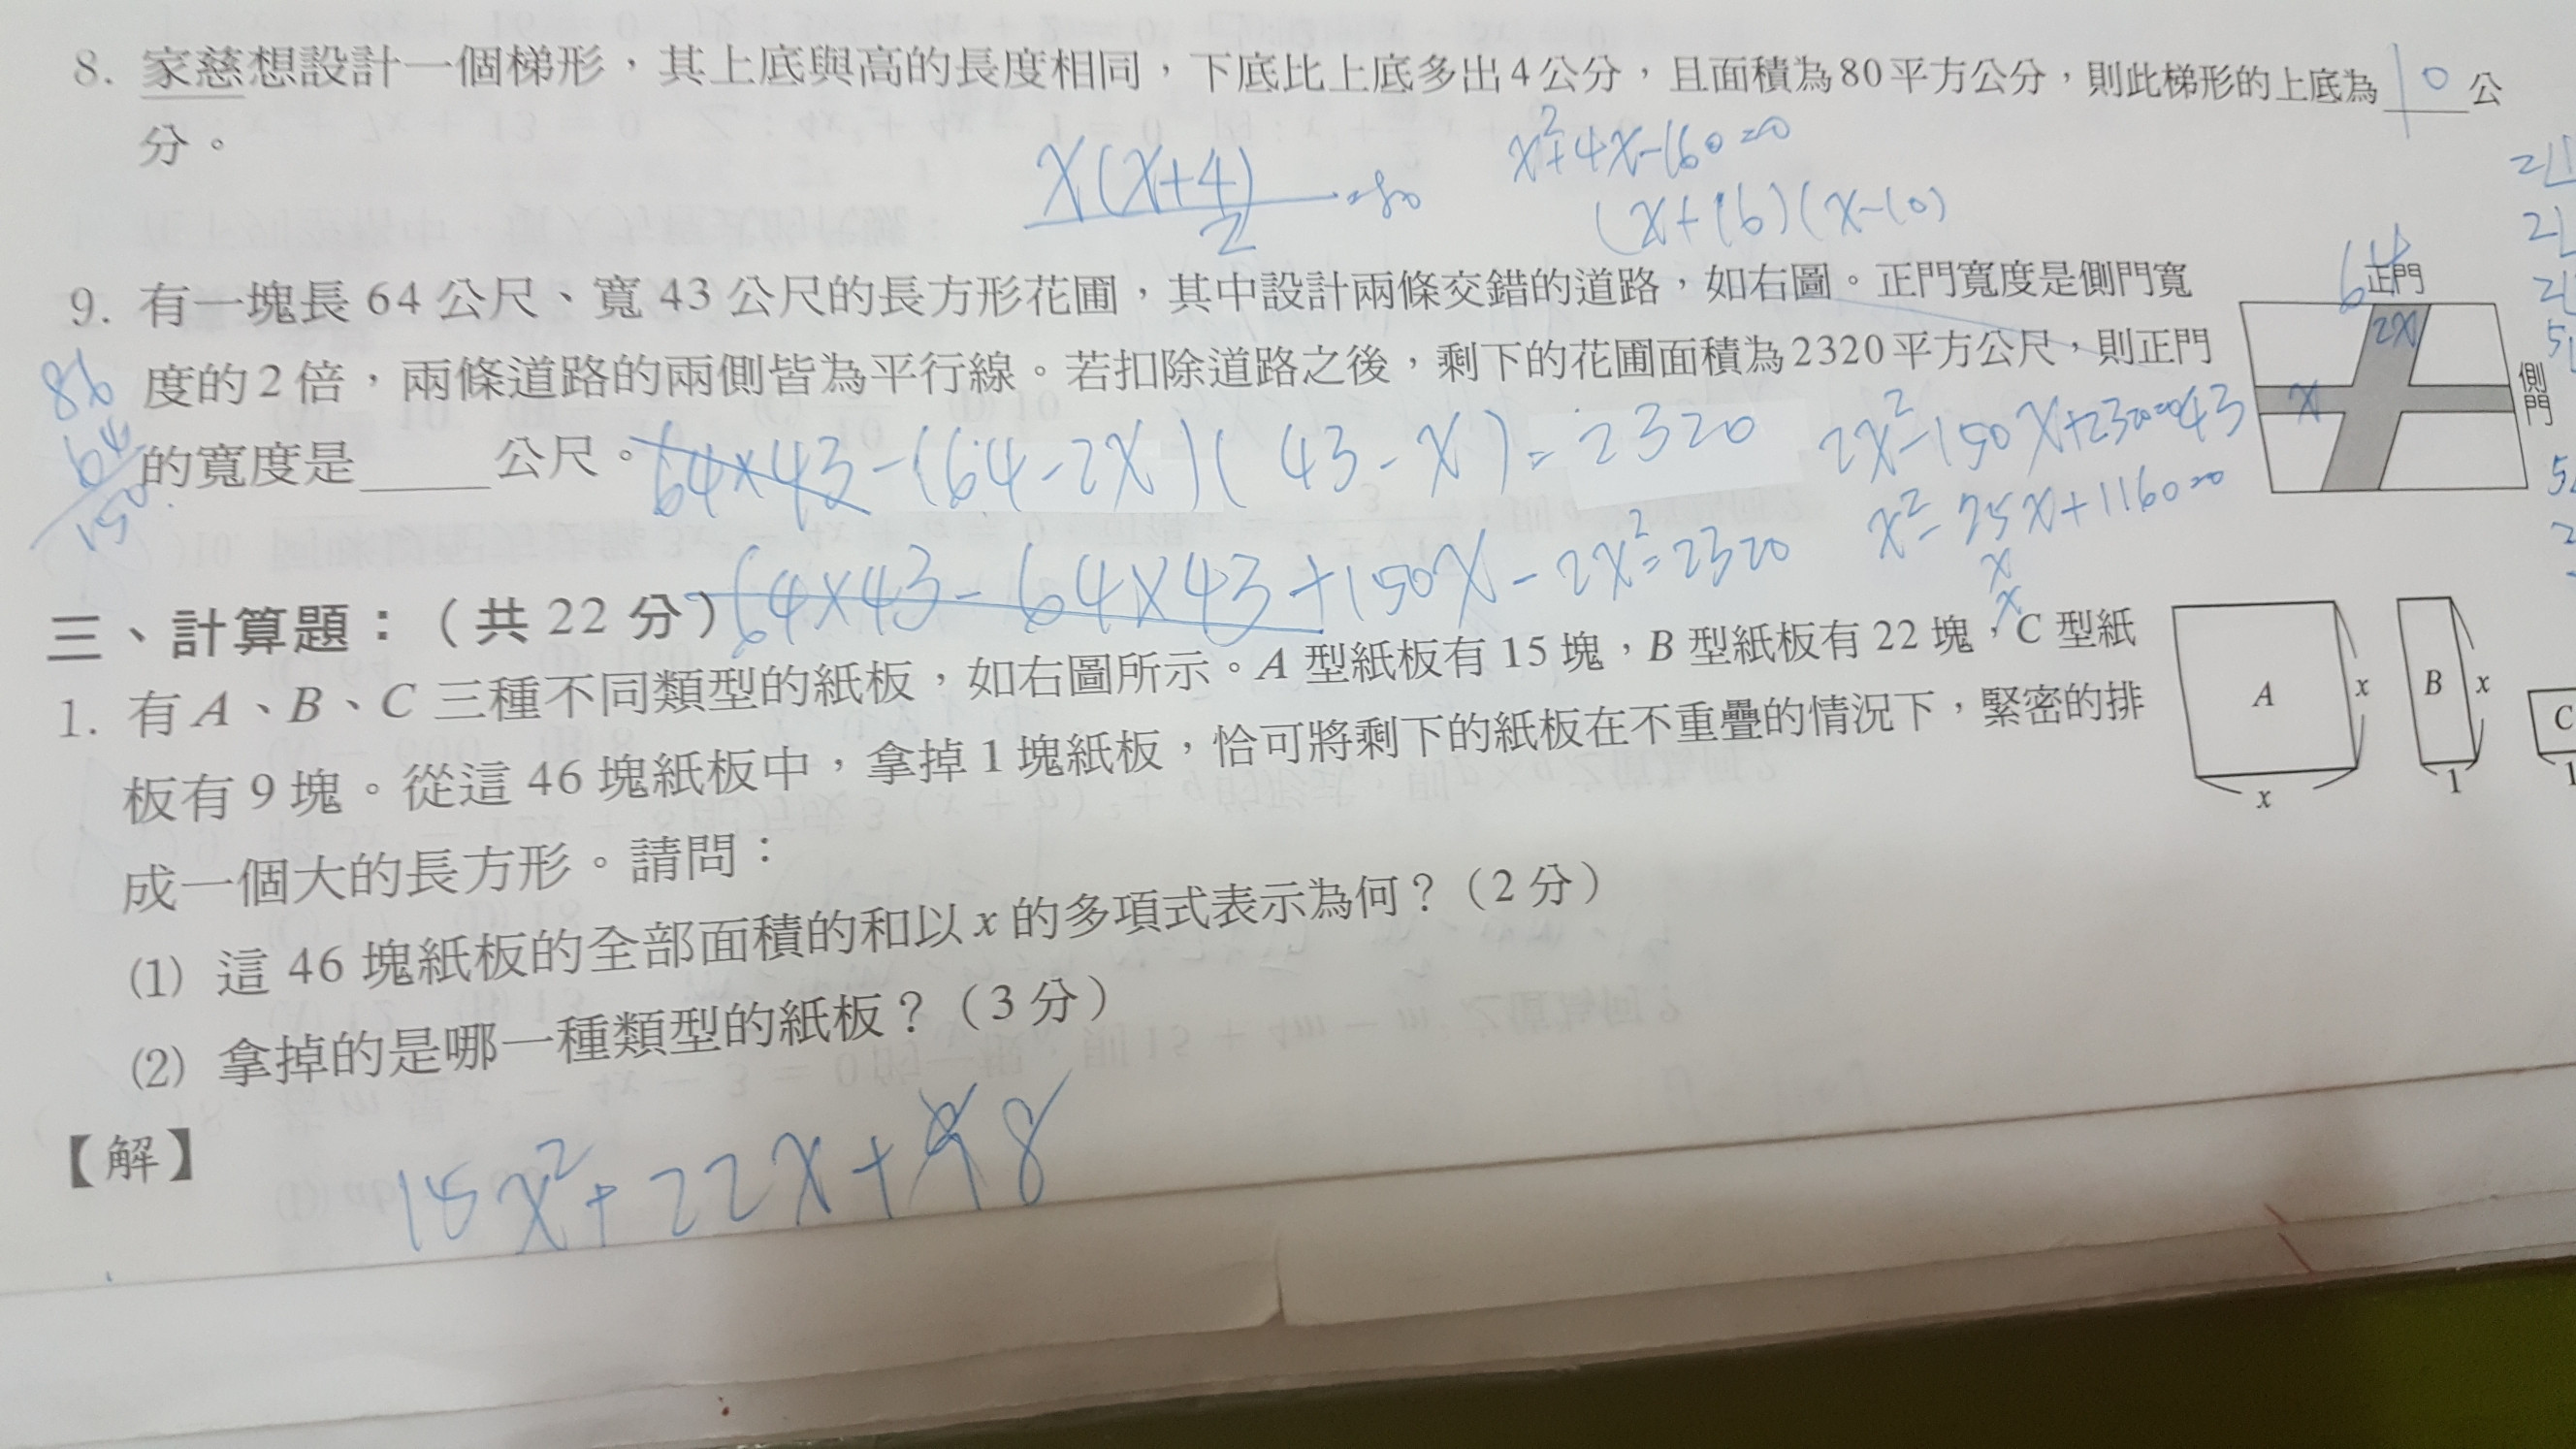 8. 家慈想設計一個梯形，其上底與高的長度相同，下底比上底多出4公分，且面積為80平方公分，則此梯形的上底為10公
分。
x(x+4)/2=80
x²+4x-160=0
(x+16)(x-10)
9. 有一塊長 64 公尺、寬 43 公尺的長方形花圃，其中設計兩條交錯的道路，如右圖。正門寬度是側門寬
度的2倍，兩條道路的兩側皆為平行線。若扣除道路之後，剩下的花圃面積為2320平方公尺，則正門
的寬度是____公尺。
86
64
150
64×43-(64-2x)(43-x)=2320
64×43-64×43+150x-2x²=2320
2x²-150x+2320=0
x²-75x+1160=0
x
x
64
正門
2x
x
側門
43
三、計算題：（共 22 分）
1. 有 A、B、C 三種不同類型的紙板，如右圖所示。A 型紙板有 15 塊，B 型紙板有 22 塊，C 型紙
板有 9 塊。從這 46 塊紙板中，拿掉 1 塊紙板，恰可將剩下的紙板在不重疊的情況下，緊密的排
成一個大的長方形。請問：
(1) 這 46 塊紙板的全部面積的和以 x 的多項式表示為何？（2 分）
(2) 拿掉的是哪一種類型的紙板？（3 分）
A
x
x
B
x
1
C
1
【解】
15x²+22x+8